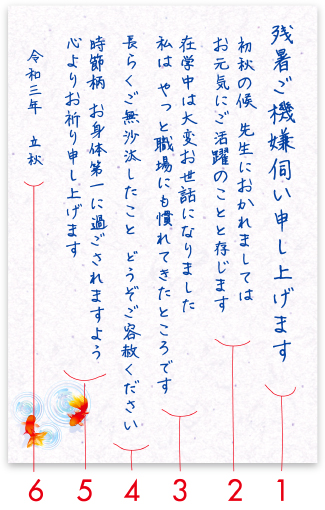 残暑ご機嫌伺い申し上げます
初秋の候 先生におかれましては
お元気にご活躍のことと存じます
在学中は大変お世話になりました
私は やっと職場にも慣れてきたところです
長らくご無沙汰したこと どうぞご容赦ください
時節柄 お身体第一に過ごされますよう
心よりお祈り申し上げます
令和三年 立秋
6 5 4 3 2 1